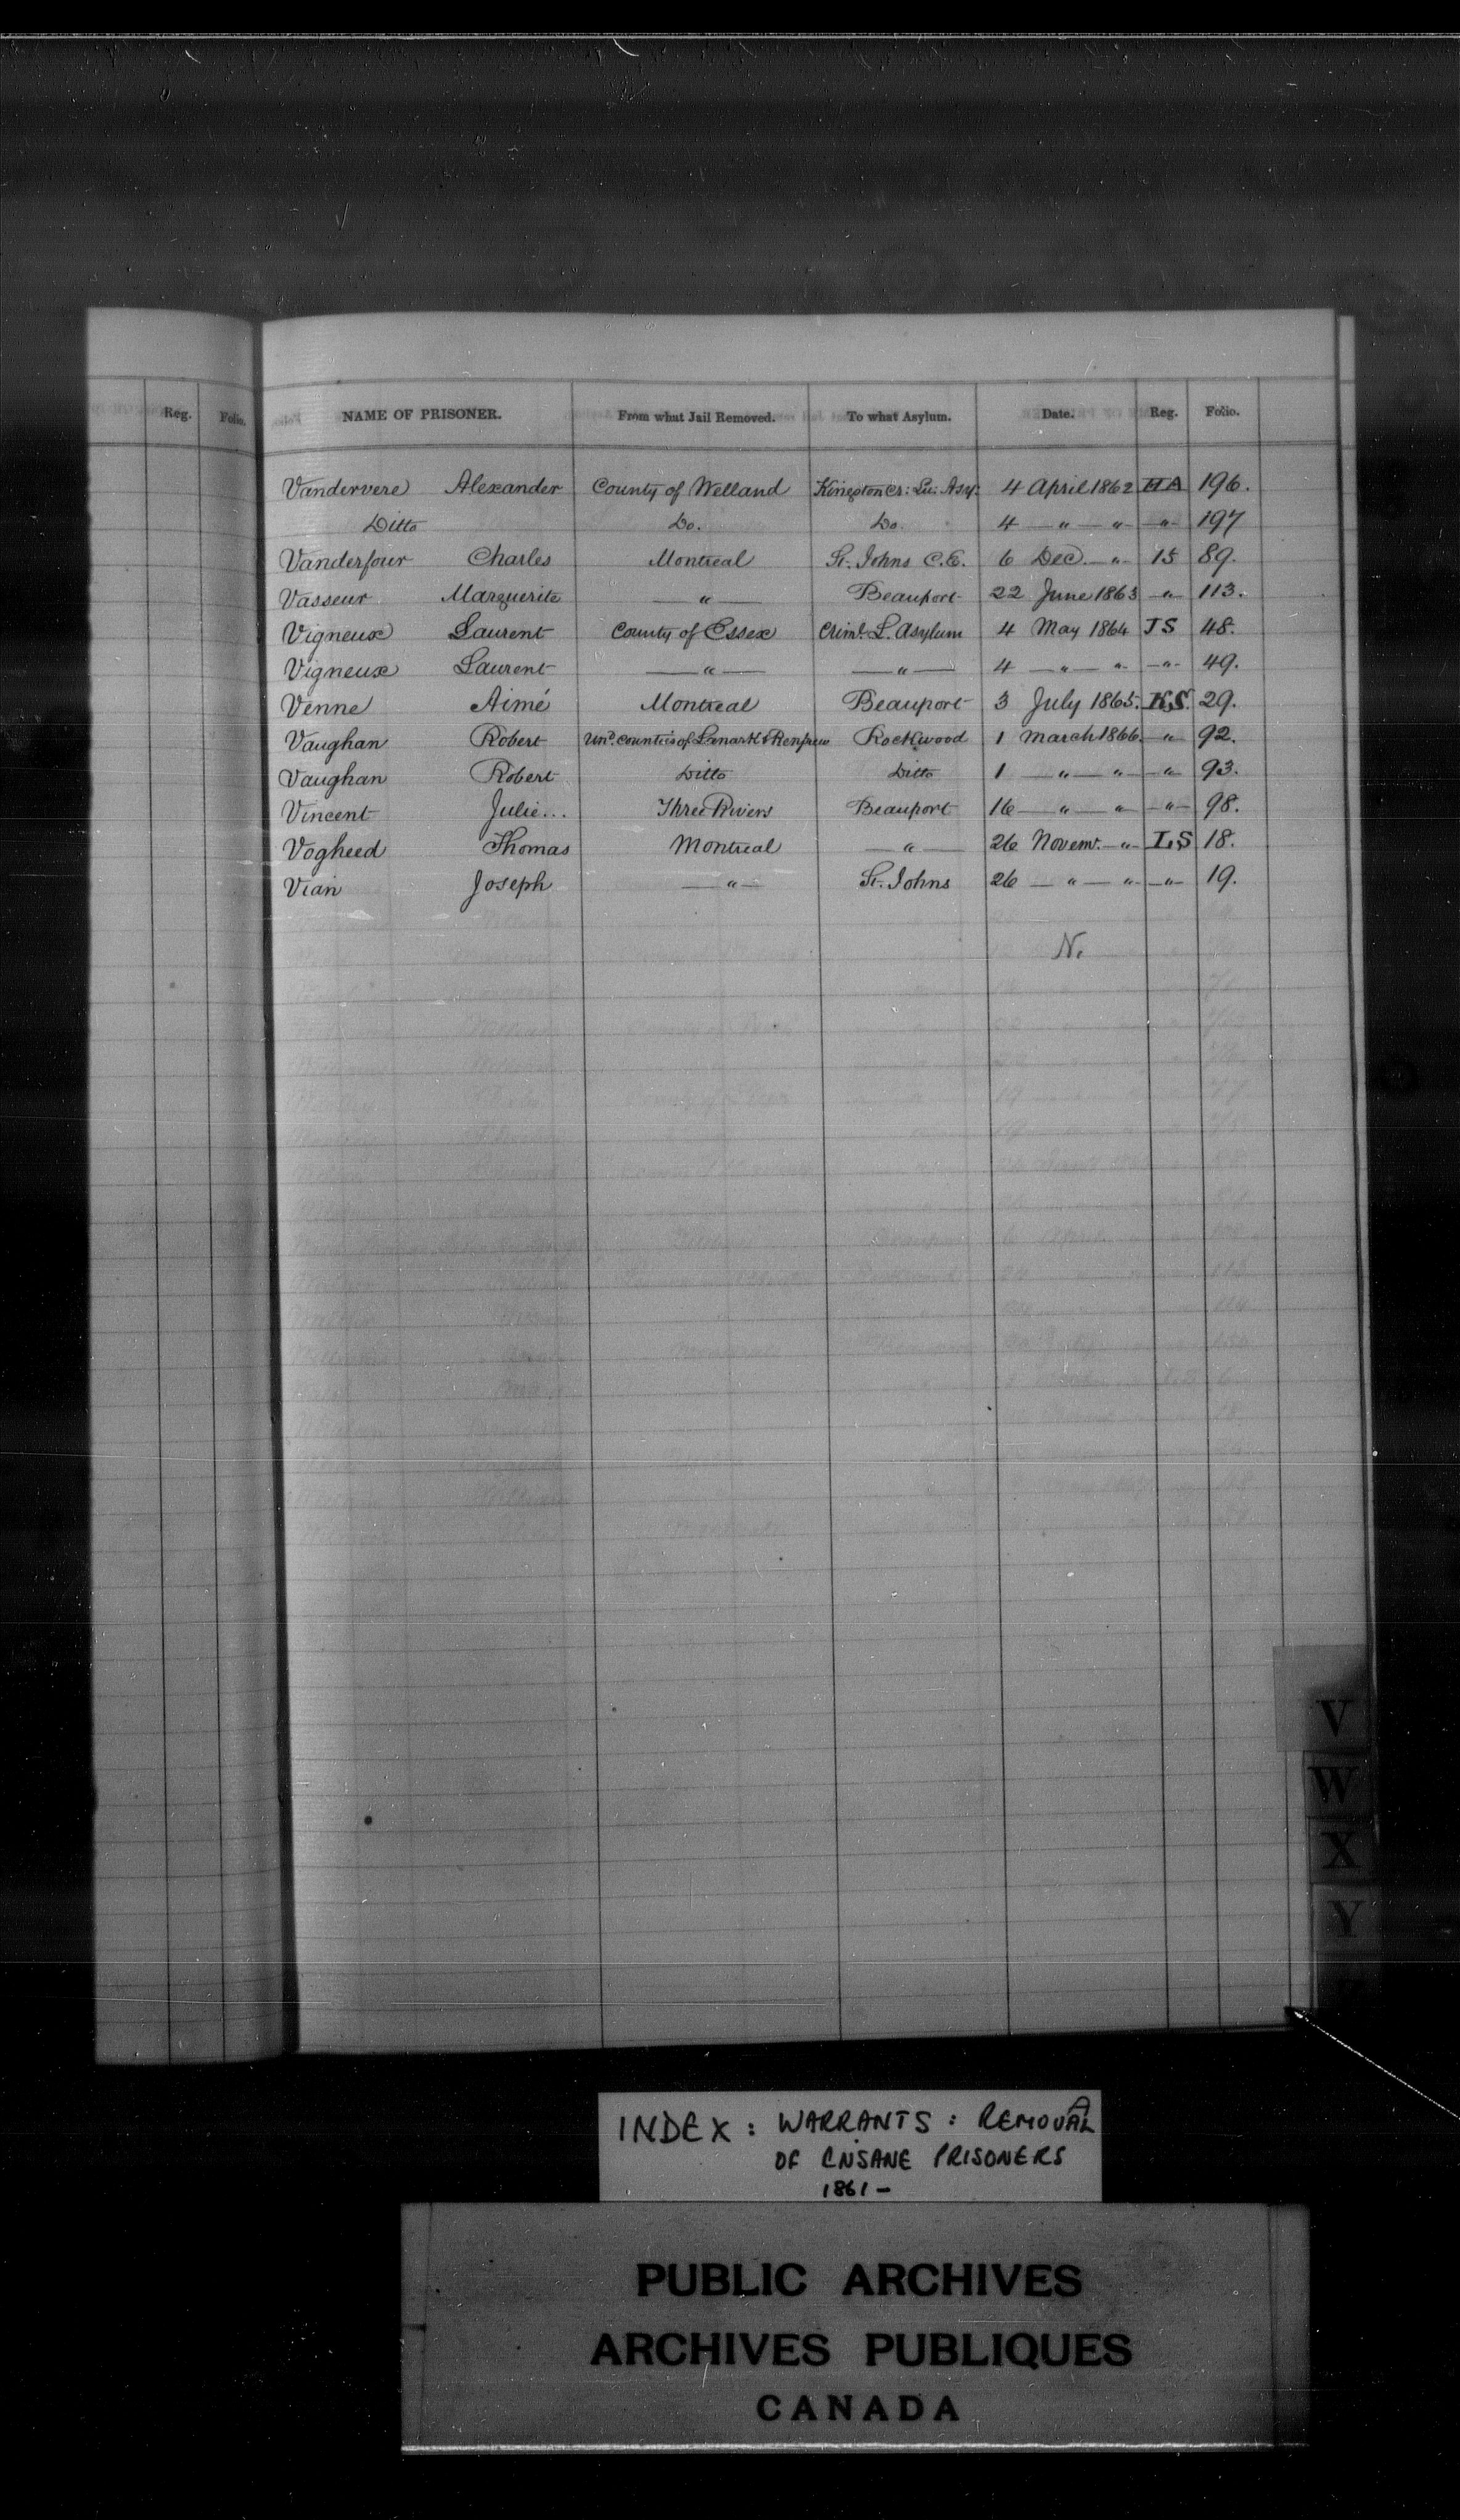 Reg. Folio. NAME OF PRISONER. From what Jail Removed. To what Asylum. Date. Reg. Folio.
Vandervere Alexander County of Welland Kingston Cr: Lu: Asy: 4 April 1862 HA 196.
Ditto Do. Do. 4 — " — " — — " — 197
Vanderfour Charles Montreal St. Johns C.E. 6 Dec. — " — 15 89.
Vasseur Marguerite — " — Beauport 22 June 1863 — " — 113.
Vigneux Laurent County of Essex Criml. L. Asylum 4 May 1864 JS 48.
Vigneux Laurent — " — — " — 4 — " — " — — " — 49.
Venne Aimé Montreal Beauport 3 July 1865. KS. 29.
Vaughan Robert Und. Counties of Lanark & Renfrew Rockwood 1 March 1866. " 92.
Vaughan Robert Ditto Ditto 1 — " — " — — " — 93.
Vincent Julie... Three Rivers Beauport 16 — " — " — — " — 98.
Vogheed Thomas Montreal — " — 26 Novemr. — " — LS 18.
Vian Joseph — " — St. Johns 26 — " — " — — " — 19.
N.
V
W
X
Y
INDEX: WARRANTS: REMOVAL
OF INSANE PRISONERS
1861 –
PUBLIC ARCHIVES
ARCHIVES PUBLIQUES
CANADA